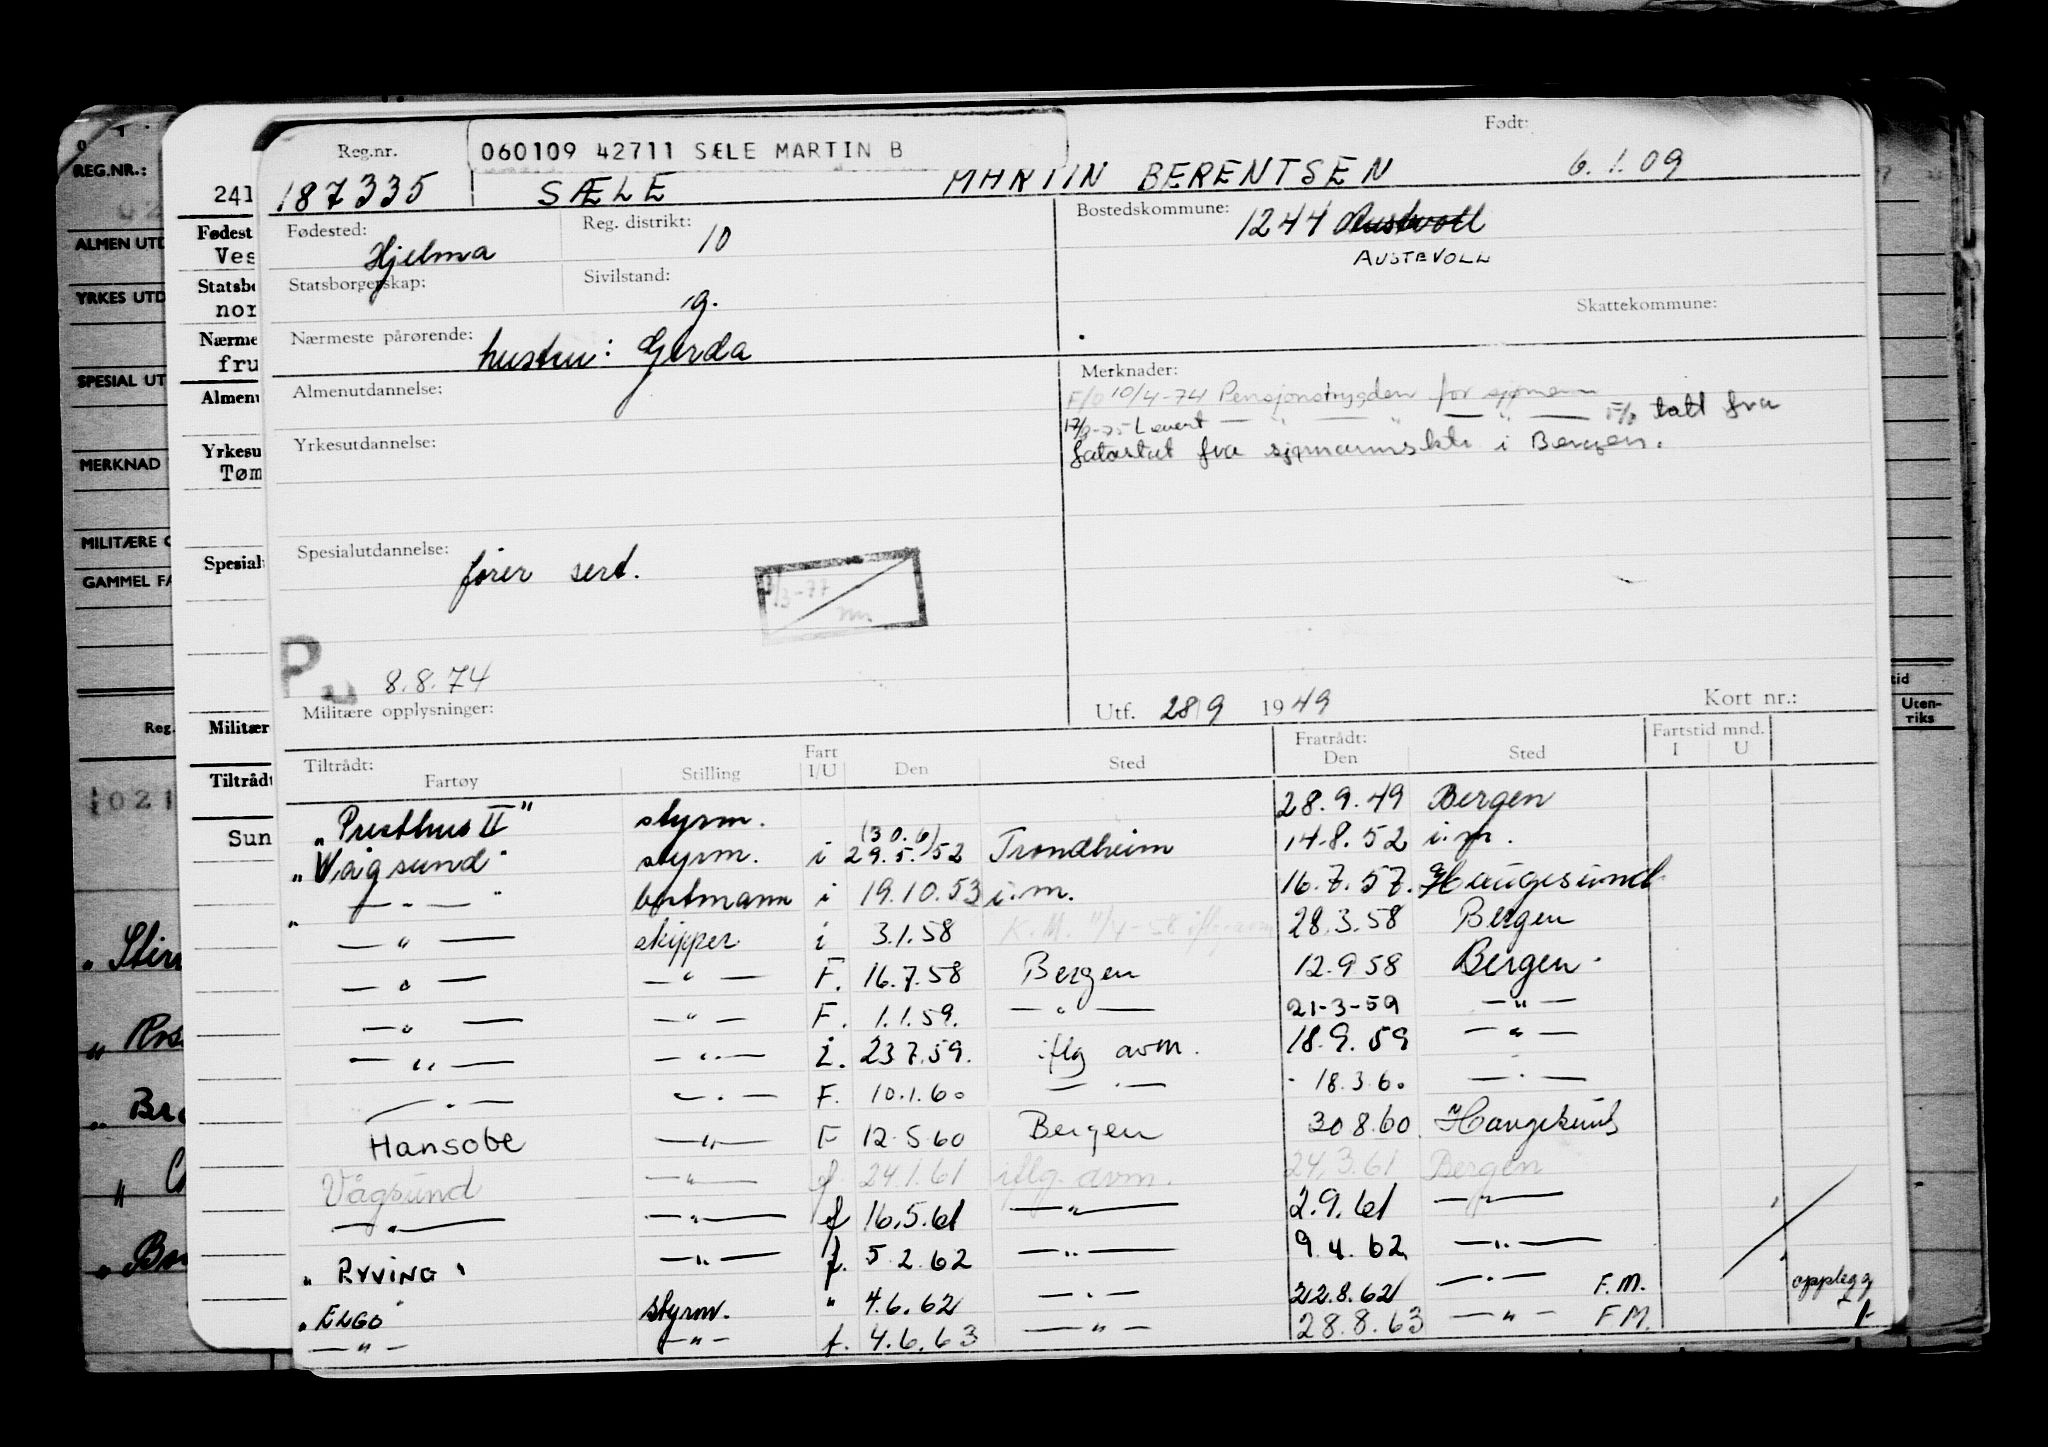 Reg.nr. 060109 42711 SÆLE MARTIN B Født:
187335 SÆLE MARTIN BERENTSEN 6.1.09
Fødested: Hjelma Reg. distrikt: 10 Bostedskommune: 1244 Austevoll
AUSTEVOLL
Statsborgerskap: Sivilstand: g. Skattekommune:
Nærmeste pårørende: hustru: Gerda
Almenutdannelse: Merknader:
F/O 10/4-74 Pensjonstrygden for sjømenn
Levert — " — " — F/o tatt fra
fotostat fra sjømannsktr i Bergen.
Yrkesutdannelse:
Spesialutdannelse: fører sert.
3-77
8.8.74
Militære opplysninger: Utf. 28/9 1949 Kort nr.:
Tiltrådt: Fart Fratrådt: Fartstid mnd.
Fartøy Stilling I/U Den Sted Den Sted I U
"Presthus II" styrm. 28.9.49 Bergen
"Vågsund" styrm. i (30.6) 29.5./52 Trondheim 14.8.52 i.m.
" — " — " bestmann i 19.10.53 i.m. 16.7.57. Haugesund
— " — skipper i 3.1.58 K.M. 11/4-58 iflg avm 28.3.58 Bergen
— " — — " — F. 16.7.58 Bergen 12.9 58 Bergen.
— " — — " — F. 1.1.59. — " — 21-3-59 — " —
— " — — " — i. 23 7.59. iflg avm. 18.9.59 — " —
— " — — " — F. 10.1.60 — " — 18.3.60 — " —
Hansobe — " — F 12.5.60 Bergen 30 8.60. Haugesund
Vågsund — " — f 24.1.61 iflg. avm. 24.3.61 Bergen
— " — — " — f 16.5.61 — " — 2.9.61 — " —
"RYVING" — " — f. 5.2.62 — " — 9.4.62 — " —
"ELGO" styrm. " 4.6.62 — " — 22.8.62 — " — F.M. opplegg
— " — — " — f. 4.6.63 — " — 28.8.63 — " — F M.
241
Fødest
Ves
Statsbo
nor
Nærme
fru
Almenu
Yrkesu
Tøm
Spesial
Militær
Tiltrådt
Sun
REG.NR.:
ALMEN UTD
YRKES UTD
SPESIAL UT
MERKNAD
MILITÆRE O
GAMMEL FA
Reg.
1021
tid
Uten-
riks